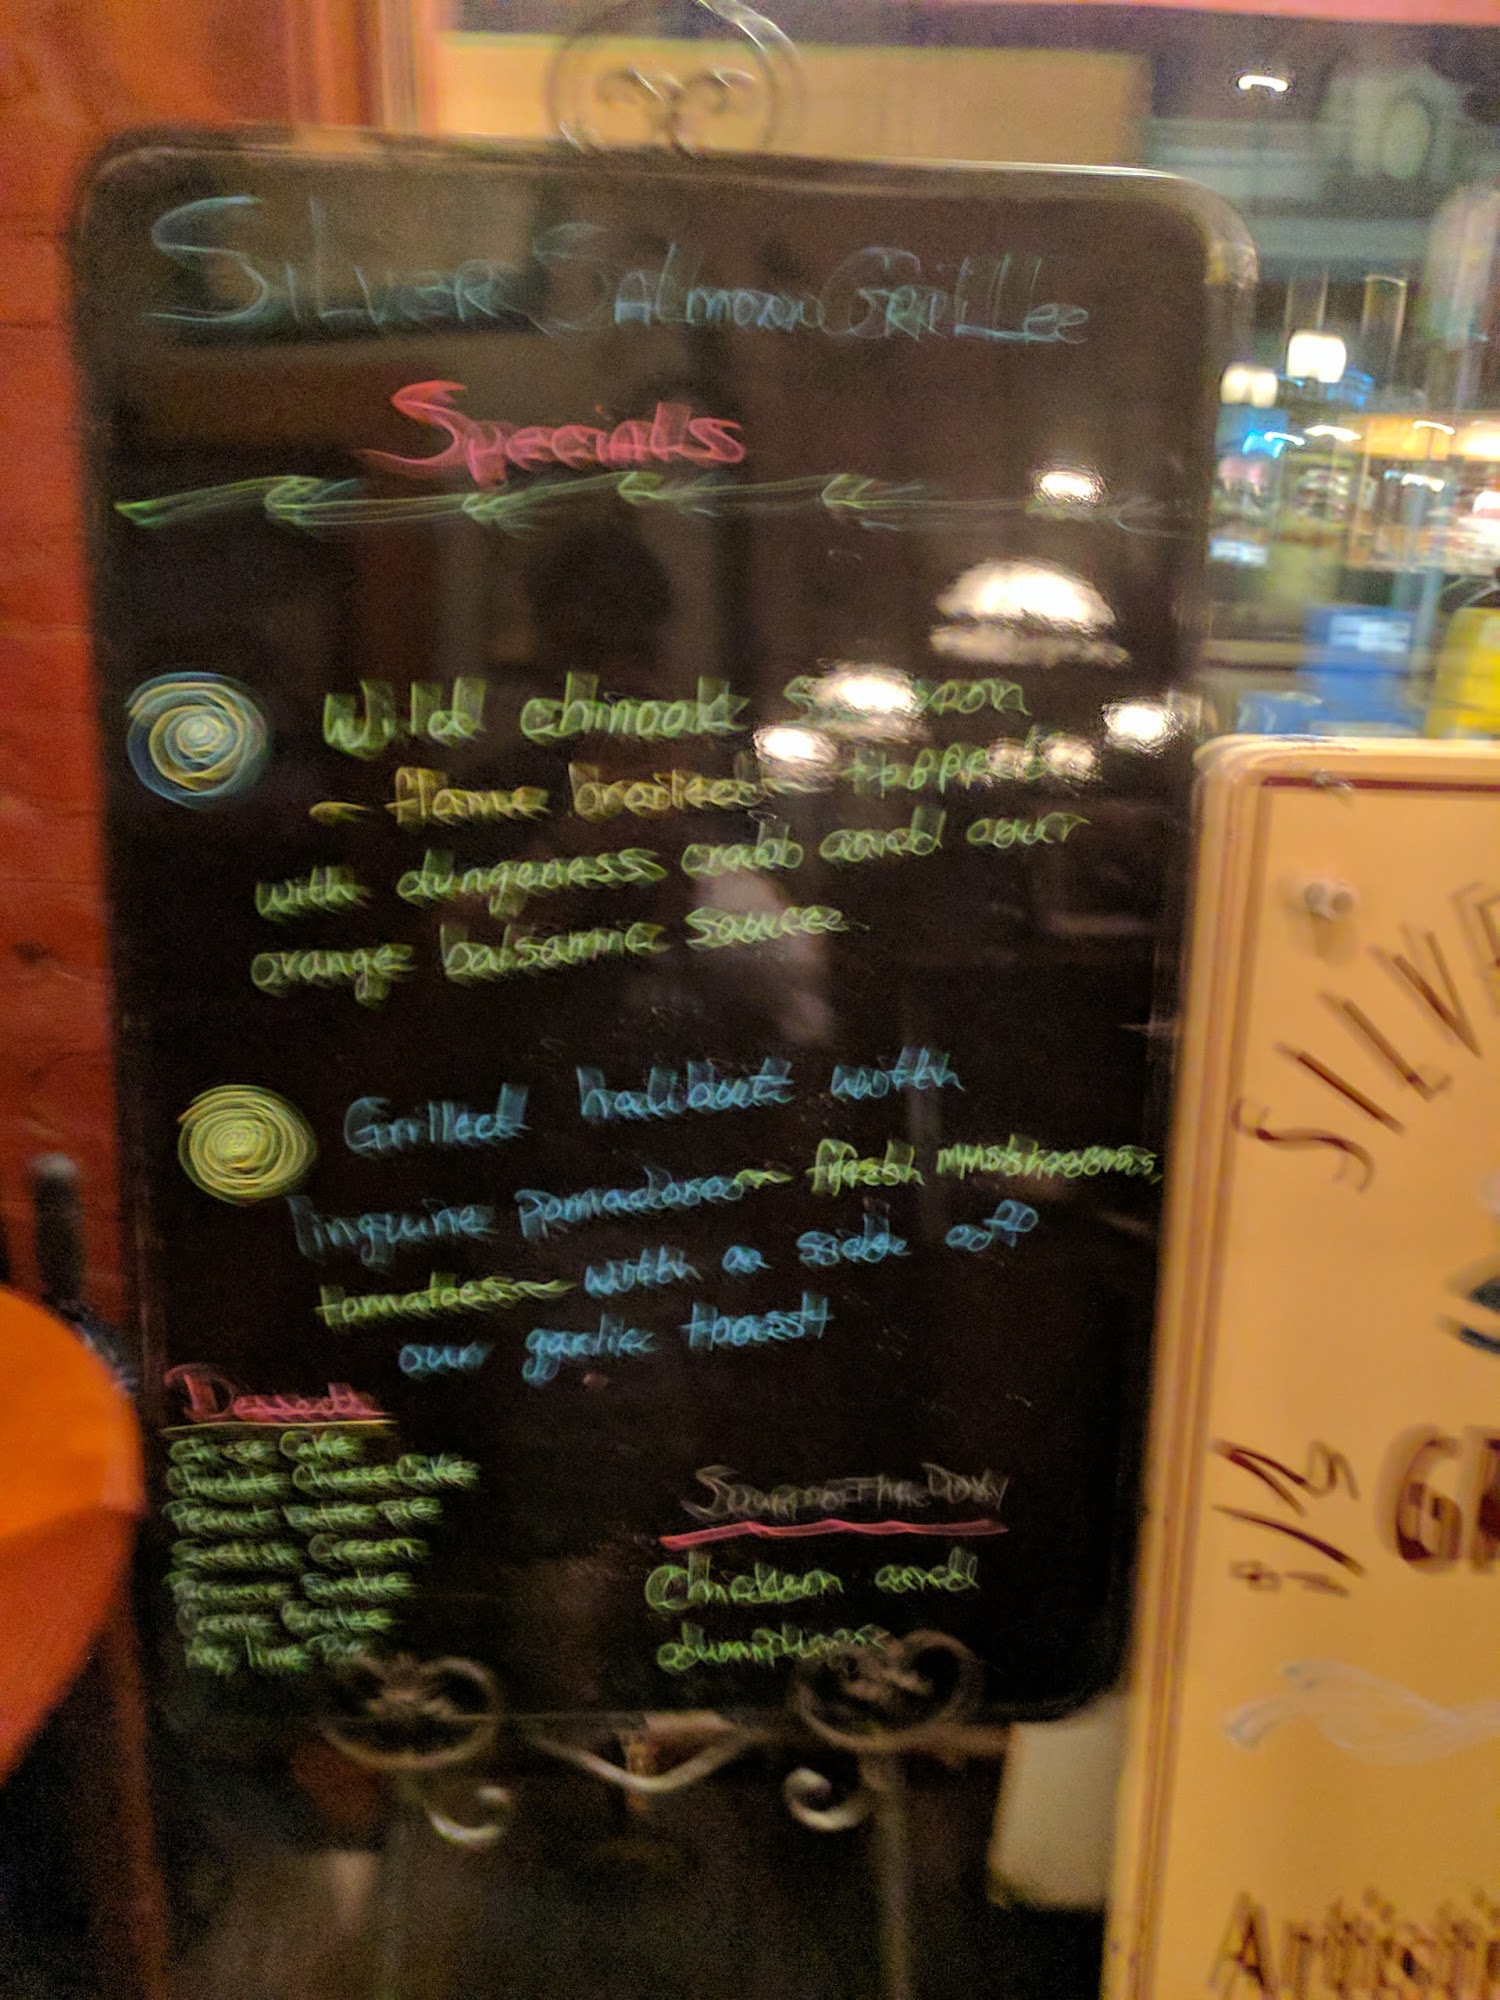 Silver Salmon Grille
Specials
Wild chinook salmon
- flame broiled - topped
with dungeness crab and our
orange balsamic sauce.
Grilled halibut with
linguine pomadoro - fresh mushrooms,
tomatoes - with a side of
our garlic toast
Desserts
Cheese Cake
Chocolate Cheese Cake
Peanut butter pie
Cream
Brownie Sundae
Creme Brulee
Key lime Pie
Soup of The Day
Chicken and
dumplings
SILVE
GR
Artisti